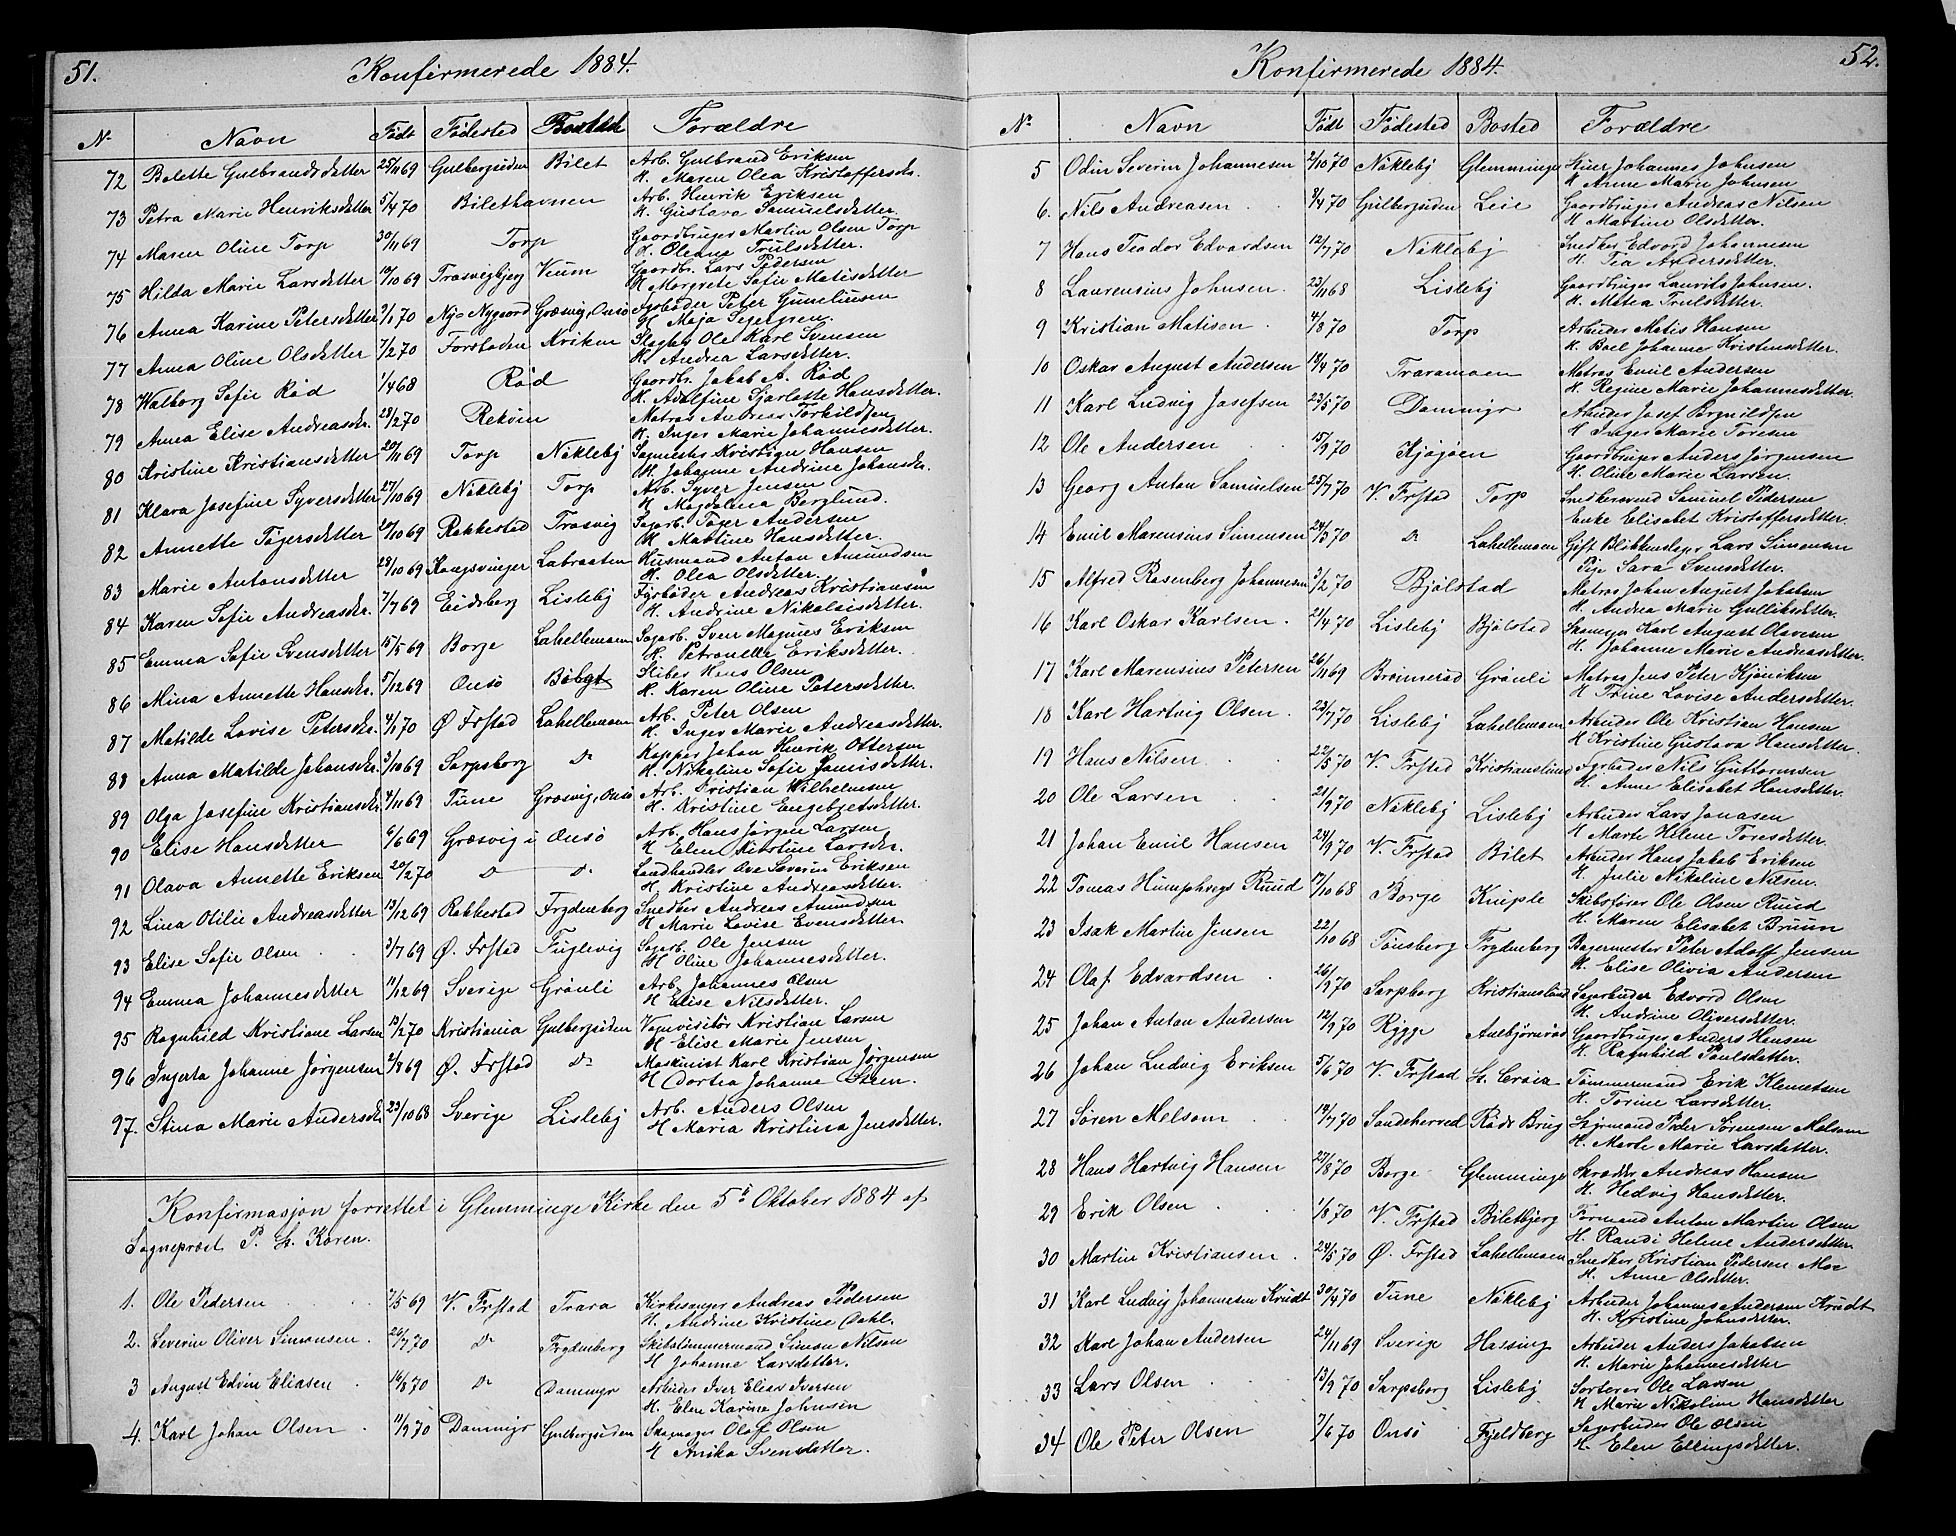 51.
Konfirmerede 1884.
No Navn Født Fødested Bosted Forældre
72 Bolette Gulbrandsdetter 25/11 69 Gulbergsiden Bilet Arb. Gulbrand Eriksen
H. Maren Olea Kristoffersdt.
73 Petra Marie Henriksdetter 5/4 70 Bilethavnen Arb. Henrik Eriksen
H. Gustava Samuelsdetter
74 Maren Oline Torp 30/11 69 Torp Gaardbruger Martin Olsen Torp
H. Oleane Trulsdetter.
75 Hilda Marie Larsdetter 19/10 69 Trosvigbjerg Veum Gaardbr. Lars Pedersen
H. Morgrete Sofie Matisdetter
76 Anna Karine Petersdetter 2/1 70 Nye Nygaard Græsvig, Onsø Fyrbøder Peter
H. Maja
77 Anna Oline Olsdetter 7/2 70 Forstaden Kviken Slagter Ole Karl Svensen
H. Andrea Larsdetter.
78 Walborg Sofie Rød 1/4 68 Rød Gaardbr. Jakob A. Rød
H. Adolfine Sjarlotte Hansdetter.
79 Anna Elise Andreasdr. 28/2 70 Rekvin Matros Andreas Torkildsen
H. Inger Marie Johannesdetter.
80 Kristine Kristiansdetter 20/11 69 Torp Nøkleby Sagmester Kristian Hansen
H. Johanne Andrine Johansdr.
81 Klara Josefine Syversdetter 27/10 69 Nøkleby Torp Arb. Syver Jensen
H. Magdalena Berglund.
82 Annette Tøgersdetter 20/10 69 Rakkestad Trosvig Sagarb. Tøger Andersen
H. Martine Hansdetter.
83 Marie Antonsdetter 28/10 69 Kongsvinger Labraaten Husmand Anton Amundsen
H. Olea Olsdetter.
84 Karen Sofie Andreasdr. 7/7 69 Eidsberg Lisleby Fyrbøder Andreas Kristiansen
H. Andrine Nikolaisdetter.
85 Emma Sofie Svensdetter 15/5 69 Borge Lahellemoen Sagarb. Sven Magnus Eriksen
H. Petronelle Eriksdetter.
86 Mina Annette Hansdr. 5/12 69 Onsø Sliber Hans Olsen
H. Karen Oline Petersdetter.
87 Matilde Lovise Petersdr. 4/1 70 Ø. Frstad Lahellemoen Arb. Peter Olsen
H. Inger Marie Andreasdetter.
88 Anna Matilde Johansdr. 3/10 69 Sarpsborg Do Kopper Johan Henrik Ottersen
H. Nikoline Sofie Jonisdetter.
89 Olga Josefine Kristiansdr. 4/11 69 Tune Græsvig, Onsø Arb. Kristian Wilhelmsen
H. Kristine Engebretsdetter.
90 Elise Hansdetter 6/6 69 Græsvig i Onsø Arb. Hans Jørgen Larsen
H. Elen Kirstine Larsdr.
91 Olava Annette Eriksen 20/2 70 Do Do Landhandler Ove Severin Eriksen
H. Kristine Andreasdetter.
92 Lina Otilie Andreasdetter 13/12 69 Rakkestad Frydenberg Snedker Andreas Amundsen
H Marie Lovise Evensdetter.
93 Elise Sofie Olsen 3/7 69 Ø. Frstad Fuglevig Sagarb. Ole Jensen
H Oline Johannesdetter.
94 Emma Johannesdetter 11/12 69 Sverige Grønli Arb. Johannes Olsen
H Elise Nilsdetter.
95 Ragnhild Kristiane Larsen 13/2 70 Kristiania Gulbergsiden Vognvisitør Kristian Larsen
H Elise Marie Jensen
96 Ingerta Johanne Jørgensen 2/8 69 Ø. Frstad Do Maskinist Karl Kristian Jørgensen
H Dortea Johanne Steen.
97. Stina Marie Andersdr. 22/10 68 Sverige Lisleby Arb. Anders Olsen
H Maria Kristina Jensdetter.
Konfirmasjon forrettet i Glemminge Kirke den 5te Oktober 1884 af
Sogneprest P. L. Koren.
1. Ole Pedersen 7/5 69 V. Frstad Trara Kirkesanger Andreas Pedersen
H. Andrine Kristine Dahl.
2. Severin Oliver Simonsen. 20/7 70 Do Frydenberg Skibstømmermand Simon Nilsen
H Johanne Larsdetter.
3 August Edvin Eliasen 14/8 70 Do Dammyr Arbeider Iver Elias Iversen
H. Elen Karine Johnsen
4. Karl Johan Olsen 11/9 70 Dammyr Gulbergsiden Skomager Olof Olsen
H Anika Svensdetter.
52.
Konfirmerede 1884.
No Navn Født Fødested Bosted Forældre
5 Odin Severin Johannesen 2/10 70 Nøkleby Glemminge Kuier Johannes Johnsen
H Anne Marie Johnsen
6. Nils Andreasen 8/4 70 Gulbergsiden Leie Gaardbruger Andreas Nilsen
H Martine Olsdetter.
7 Hans Teador Edvardsen 12/7 70 Nøkleby Snedker Edvard Johannesen
H. Tea Andersdetter.
8 Laurensius Johnsen. 23/11 68 Lisleby Gaardbruger Laurits Johnsen.
H. Matea Trulsdetter.
9 Kristian Matisen 4/8 70 Torp Arbeider Matis Hansen
H. Boel Johanne Kristensdetter.
10 Oskar August Andersen 18/4 70 Traramoen Matros Emil Andersen
H. Regine Marie Johannesdetter.
11 Karl Ludvig Josefsen 23/5 70 Dammyr Arbeider Josef Brynildsen
H Inger Marie Toresen
12 Ole Andersen 15/9 70 Kjøjøen Gaardbruger Anders Jørgensen
H. Oline Marie Larsen.
13 Georg Anton Samuelsen 25/7 70 V. Frstad Torp Snedkersvend Samuel Pedersen
Enke Elisabet Kristoffersdetter.
14 Emil Marensius Simensen 24/3 70 Do Lahellemoen Gift Blikkenslager Lars Simensen
Pige Sara Svensdetter.
15 Alfred Rosenberg Johannesen 3/2 70 Bjølstad Matros Johan August Jakobsen
H. Andrea Marie Gulliksdetter.
16 Karl Oskar Karlsen. 21/4 70 Lisleby Bjølstad Skomager Karl August Olavesen
H. Johanne Marie Andreasdetter.
17 Karl Marensius Petersen 26/11 69 Brønnerød Grønli Matros Jens Peter Hjøriksen
H Trine Lovise Andersdetter.
18 Karl Hartvig Olsen. 23/7 70 Lisleby Lahellemoen Arbeider Ole Kristian Hansen
H Kristine Gustava Hansdetter.
19 Hans Nilsen 22/5 70 V. Frstad Kristianslund Fyrbøder Nils Guttormsen
H. Anne Elisabet Hansdetter.
20 Ole Larsen 21/9 70 Nøkleby Lisleby Arbeider Lars Jonasen
H Marte Helene Toresdetter.
21 Johan Emil Hansen 24/9 70 V. Frstad Bilet Arbeider Hans Jakob Eriksen
H. Julie Nikoline Nilsen.
22 Tomas Humphreys Ruud 17/10 68 Borge Kniple Skibsfører Ole Olsen Ruud
H. Maren Elisabet Bruun
23 Isak Martin Jensen 22/10 68 Tønsberg Frydenberg Bagermester Peter Adolf Jensen
H. Elise Olivia Andersen
24 Olaf Edvardsen 26/9 70 Sarpsborg Kristianslund Sagarbeider Edvard Olsen
H. Andrine Oliversdetter.
25 Johan Anton Andersen 12/9 70 Rygge Aubjørnrød Gaardbruger Anders Hansen
H. Ragnhild Poulsdetter.
26 Johan Ludvig Eriksen 5/6 70 V. Frstad St. Croix Tømmermand Erik Klemetsen
H. Torine Larsdetter.
27 Søren Melsom 14/7 70 Sandeherred Røds Brug Styrmand Peder Sørensen Melsom
H. Marte Marie Larsdetter.
28 Hans Hartvig Hansen 27/8 70 Borge Glemminge Skrædder Andreas Hansen
H. Hedvig Hansdetter.
29 Erik Olsen 1/8 70 V. Frstad Biletbjerg Formand Anton Martin Olsen
H. Randi Helene Andersdetter.
30 Martin Kristiansen 24/5 70 Ø. Frstad Lahellemoen Snedker Kristian Pedersen Moe
H. Anne Olsdetter.
31 Karl Ludvig Johannesen Krudt 30/4 70 Tune Nøkleby Arbeider Johannes Andersen Krudt
H. Kristine Johnsdetter.
32 Karl Johan Andersen 24/11 69 Sverige Hassing Arbeider Anders Jakobsen
H. Marie Johannesdetter
33 Lars Olsen 13/9 70 Sarpsborg Lisleby Sorterer Ole Larsen
H Marie Nikoline Hansdetter
34 Ole Peter Olsen 7/6 70 Onsø Fjeldberg Sagarbeider Ole Olsen
H. Elen Ellingsdetter.